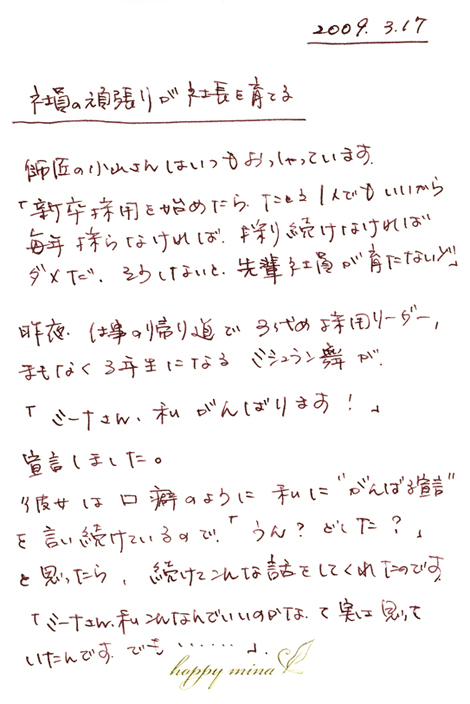 2009. 3.17
社員の頑張りが社長を育てる
師匠の小山さんはいつもおっしゃっています.
「新卒採用を始めたら、たとえ1人でもいいから
毎年採らなければ、採り続けなければ
ダメだ、そうしないと、先輩社員が育たないゾ」
昨夜、仕事の帰り道で3代め採用リーダー,
まもなく3年生になるミシュラン舞が、
「ミーナさん、私がんばります!」
宣言しました。
彼女は口癖のように私に"がんばる宣言"
を言い続けているので、「うん?どした?」
と思ったら、続けてこんな話をしてくれたのです
「ミーナさん、私こんなんでいいのかな、て実は思って
いたんです.でも……」.
happy mina